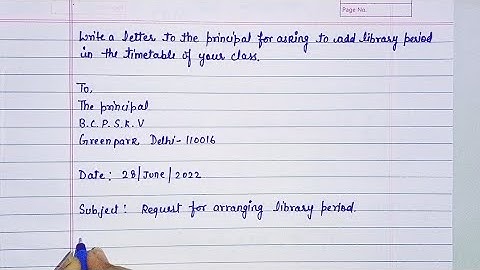 Page No.
Write a letter to the principal for asking to add library period
in the timetable of your class.
To,
The principal
B.C.P.S.K.V
Greenpark Delhi-110016
Date: 28/June/2022
Subject: Request for arranging library period.